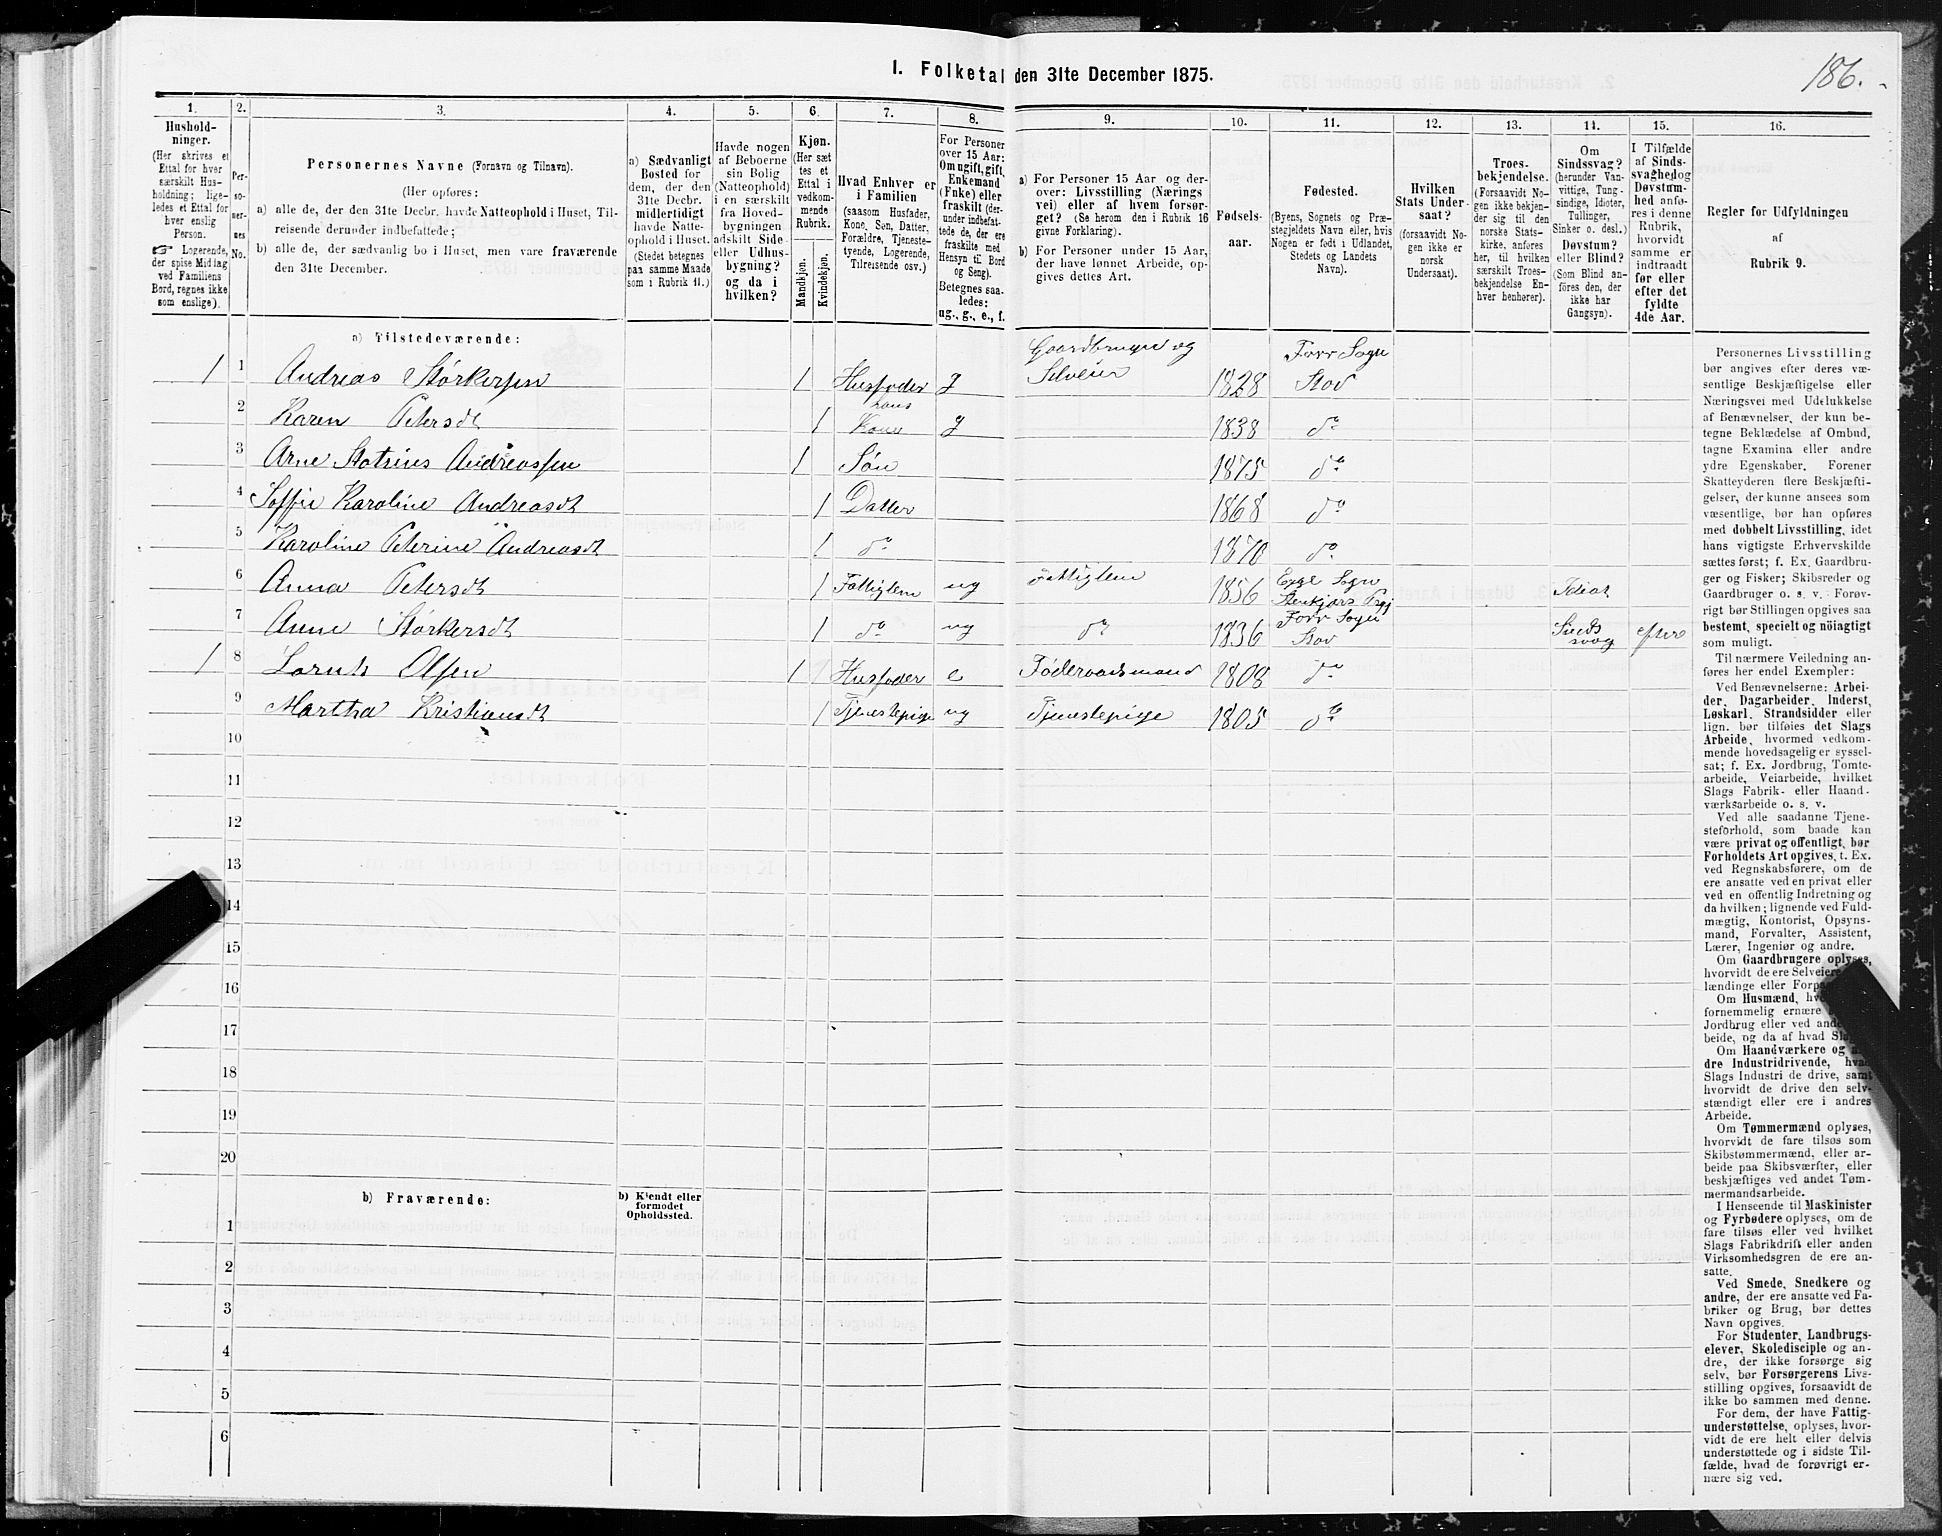 I. Folketal den 31te December 1875.
186.
1.
2.
3.
4.
5.
6.
7.
8.
9.
10.
11.
12.
13.
14.
15.
16.
Hushold-
ninger.
(Her skrives et
Ettal for hver
særskilt Hus-
holdning; lige-
ledes et Ettal for
hver enslig
Person.
☞ Logerende,
der spise Middag
ved Familiens
Bord, regnes ikke
som enslige).
Per-
so-
ner-
nes
No.
Personernes Navne (Fornavn og Tilnavn).
(Her opføres:
a) alle de, der den 31te Decbr. havde Natteophold i Huset, Til-
reisende derunder indbefattede;
b) alle de, der sædvanlig bo i Huset, men vare fraværende
den 31te December.
a) Sædvanligt
Bosted for
dem, der den
31te Decbr.
midlertidigt
havde Natte-
ophold i Huset.
(Stedet betegnes
paa samme Maade
som i Rubrik 11.)
Havde nogen
af Beboerne
sin Bolig
(Natteophold)
i en særskilt
fra Hoved-
bygningen
adskilt Side-
eller Udhus-
bygning?
og da i
hvilken?
Kjøn.
(Her sæt-
tes et
Ettal i
vedkom-
mende
Rubrik.
Mandkjøn.
Kvindekjøn.
Hvad Enhver er
i Familien
(saasom Husfader,
Kone, Søn, Datter,
Forældre, Tjeneste-
tyende, Logerende,
Tilreisende osv.)
For Personer
over 15 Aar:
Om ugift, gift,
Enkemand
(Enke) eller
fraskilt (der-
under indbefat-
tede de, der ere
fraskilte med
Hensyn til Bord
og Seng).
Betegnes saa-
ledes:
ug., g., e., f.
a) For Personer 15 Aar og der-
over: Livsstilling (Nærings
vei) eller af hvem forsør-
get? (Se herom den i Rubrik 16
givne Forklaring).
b) For Personer under 15 Aar,
der have lønnet Arbeide, op-
gives dettes Art.
Fødsels-
aar.
Fødested.
(Byens, Sognets og Præ-
stegjeldets Navn eller, hvis
Nogen er født i Udlandet,
Stedets og Landets
Navn).
Hvilken
Stats Under-
saat?
(forsaavidt No-
gen ikke er
norsk
Undersaat).
Troes-
bekjendelse.
(Forsaavidt No-
gen ikke bekjen-
der sig til den
norske Stats-
kirke, anføres
her, til hvilken
særskilt Troes-
bekjendelse En-
hver henhører).
Om
Sindssvag?
(herunder Van-
vittige, Tung-
sindige, Idioter,
Tullinger,
Sinker o. desl.)
Døvstum?
eller Blind?
(Som Blind an-
føres den, der
ikke har
Gangsyn).
I Tilfælde
af Sinds-
svaghed og
Døvstum-
hed anfø-
res i denne
Rubrik,
hvorvidt
samme er
indtraadt
før eller
efter det
fyldte
4de Aar.
Regler for Udfyldningen
af
Rubrik 9.
a) Tilstedeværende:
1 1 Andreas Størkersen 1 Husfader g Gaardbruger og Selveier 1828 Forr Sogn Stod
2 Karen Petersdt 1 hans Kone g 1838 do
3 Arne Andreassen 1 Søn 1875 do
4 Soffie Karoline Andreasdt 1 Datter 1868 do
5 Karoline Peterine Andreasdt 1 do 1870 do
6 Anna Petersdt 1 Fattiglem ug Fattiglem 1856 Egge Sogn Stenkjærs Prgj Idiot
7 Anne Størkersdt 1 do ug do 1836 Forr Sogn Stod Sinds svag efter
1 8 Lornts Olsen 1 Husfader e Føderaadsmand 1808 do
9 Martha Kristiansdt 1 Tjenestepige ug Tjenestepige 1805 do
10
11
12
13
14
15
16
17
18
19
20
b) Fraværende:
b) Kjendt eller
formodet
Opholdssted.
1
2
3
4
5
6
Personernes Livsstilling
bør angives efter deres væ-
sentlige Beskjæftigelse eller
Næringsvei med Udelukkelse
af Benævnelser, der kun be-
tegne Beklædelse af Ombud,
tagne Examina eller andre
ydre Egenskaber. Forener
Skatteyderen flere Beskjæfti-
gelser, der kunne ansees som
væsentlige, bør han opføres
med dobbelt Livsstilling, idet
hans vigtigste Erhvervskilde
sættes først; f. Ex. Gaardbru-
ger og Fisker; Skibsreder og
Gaardbruger o. s. v. Forøv-
rigt bør Stillingen opgives saa
bestemt, specielt og nöiagtigt
som muligt.
Til nærmere Veiledning an-
føres her endel Exempler:
Ved Benævnelserne: Arbei-
der, Dagarbeider, Inderst,
Løskarl, Strandsidder eller
lign. bør tilføies det Slags
Arbeide, hvormed vedkom-
mende hovedsagelig er syssel-
sat; f. Ex. Jordbrug, Tomte-
arbeide, Veiarbeide, hvilket
Slags Fabrik- eller Haand-
værksarbeide o. s. v.
Ved alle saadanne Tjene-
steforhold, som baade kan
være privat og offentligt, bør
Forholdets Art opgives, t. Ex.
ved Regnskabsførere, om de
ere ansatte ved en privat eller
ved en offentlig Indretning og
da hvilken; lignende ved Fuld-
mægtig, Kontorist, Opsyns-
mand, Forvalter, Assistent,
Lærer, Ingeniør og andre.
Om Gaardbrugere oplyses,
hvorvidt de ere Selveiere
lændinge eller
Om Husmænd,
fornemmelig ernære
Jordbrug eller ved
beide, og da af hvad
Om Haandværkere og
dre Industridrivende,
Slags Industri de drive, samt
hvorvidt de drive den selv-
stændigt eller ere i andres
Arbeide.
Om Tømmermænd oplyses,
hvorvidt de fare tilsøs som
Skibstømmermænd, eller ar-
beide paa Skibsværfter, eller
beskjæftiges ved andet Tøm-
mermandsarbeide.
I Henseende til Maskinister
og Fyrbødere oplyses, om de
fare tilsøs eller ved hvilket
Slags Fabrikdrift eller anden
Virksomhedsgren de ere an-
satte.
Ved Smede, Snedkere og
andre, der ere ansatte ved Fa-
briker og Brug, bør dettes
Navn opgives.
For Studenter, Landbrugs-
elever, Skoledisciple og an-
dre, der ikke forsørge sig
selv, bør Forsørgerens Livs-
stilling opgives, forsaavidt de
ikke bo sammen med denne.
For dem, der have Fattig-
understøttelse, oplyses, hvor-
vidt de ere helt eller delvis
understøttede og i sidste Til-
fælde, hvad de forøvrigt er-
nære sig ved.